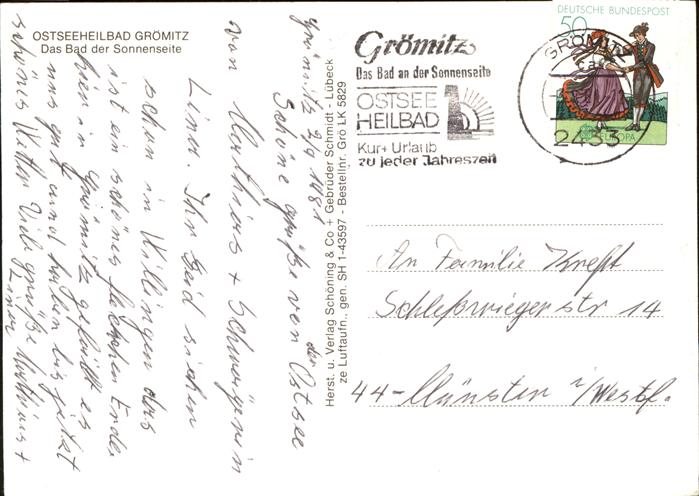 OSTSEEHEILBAD GRÖMITZ
Das Bad der Sonnenseite
Grömitz 2/9 1981
Schöne grüße von der Ostsee
von Mathias + Schwägerin
Linda. Ihr seid sicher
schon in Willingen das
ist ein schönes
hier in Grömitz gefällt es
uns gut und haben bis jetzt
schönes Wetter Viele grüße Mathias +
Herst. u. Verlag Schöning & Co + Gebrüder Schmidt - Lübeck
ze Luftaufn., gen. SH 1-43597 - Bestellnr. Grö LK 5829
Grömitz
Das Bad an der Sonnenseite
OSTSEE
HEILBAD
Kur + Urlaub
zu jeder Jahreszeit
GRÖMITZ
2433
DEUTSCHE BUNDESPOST
50
EUROPA
An Familie Kreft
Schleßwieger str 14
44-Münster i/Westf.